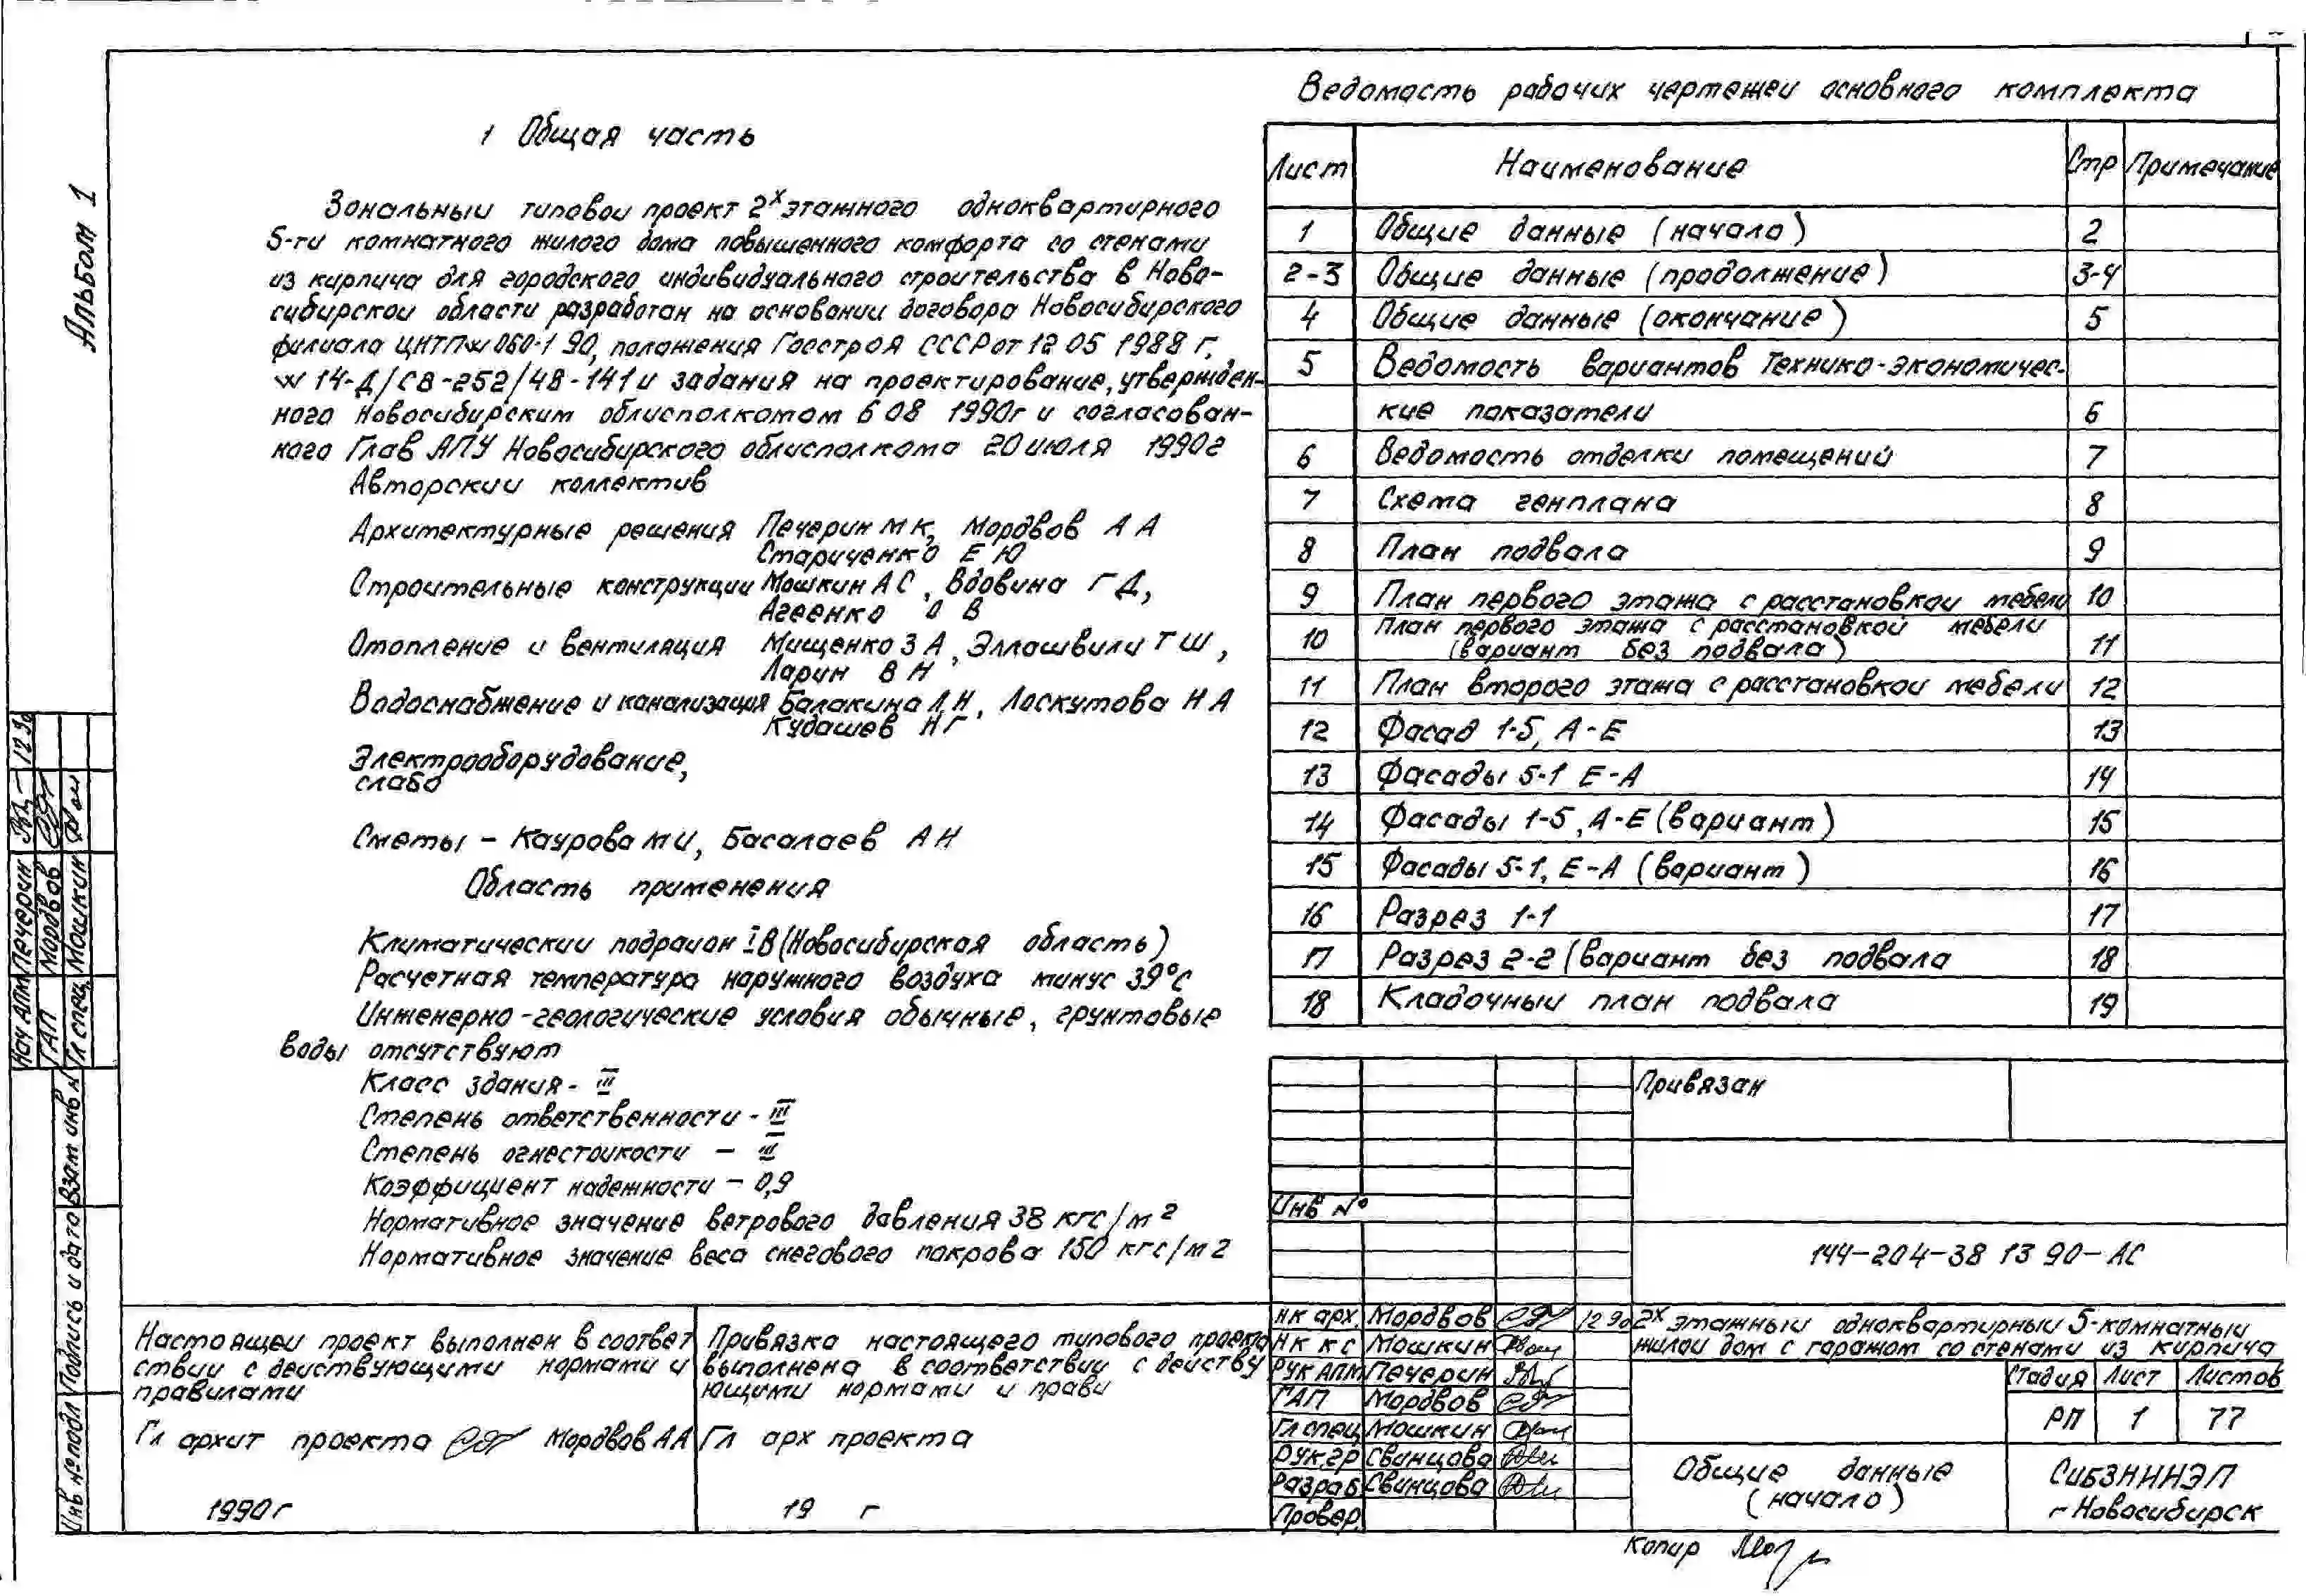 Альбом 1
1 Общая часть
Зональный типовой проект 2х этажного одноквартирного
5-ти комнатного жилого дома повышенного комфорта со стенами
из кирпича для городского индивидуального строительства в Ново-
сибирской области разработан на основании договора Новосибирского
филиала ЦИТП № 060-1 90, положения Госстроя СССР от 12 05 1988 г.,
№ 14-Д/СВ-252/48-141 и задания на проектирование, утвержден-
ного Новосибирским облисполкомом 6 08 1990г и согласован-
ного Глав АПУ Новосибирского облисполкома 20 июля 1990г
Авторский коллектив
Архитектурные решения Печерин М К, Мордвов А А
Стариченко Е Ю
Строительные конструкции Мошкин А С, Вдовина Г Д,
Агеенко О В
Отопление и вентиляция Мищенко З А, Эллошвили Т Ш,
Ларин В Н
Водоснабжение и канализация Балакина Л Н, Лоскутова Н А
Кудашев Н Г
Электрооборудование,
слабо
Сметы – Каурова М И, Басалаев А Н
Область применения
Климатический подрайон IВ (Новосибирская область)
Расчетная температура наружного воздуха минус 39°С
Инженерно-геологические условия обычные, грунтовые
воды отсутствуют
Класс здания - III
Степень ответственности - III
Степень огнестойкости – III
Коэффициент надежности – 0,9
Нормативное значение ветрового давления 38 кгс/м2
Нормативное значение веса снегового покрова 150 кгс/м2
Настоящей проект выполнен в соответ
ствии с действующими нормами и
правилами
Гл архит проекта Мордвов АА
1990г
Привязка настоящего типового проекта
выполнена в соответствии с действу
ющими нормами и прави
Гл арх проекта
19 г
Ведомость рабочих чертежей основного комплекта
Лист Наименование Стр Примечание
1 Общие данные (начало) 2
2-3 Общие данные (продолжение) 3-4
4 Общие данные (окончание) 5
5 Ведомость вариантов Технико-экономичес-
кие показатели 6
6 Ведомость отделки помещений 7
7 Схема генплана 8
8 План подвала 9
9 План первого этажа с расстановкой мебели 10
10 План первого этажа с расстановкой мебели
(вариант без подвала) 11
11 План второго этажа с расстановкой мебели 12
12 Фасад 1-5, А-Е 13
13 Фасады 5-1 Е-А 14
14 Фасады 1-5, А-Е (вариант) 15
15 Фасады 5-1, Е-А (вариант) 16
16 Разрез 1-1 17
17 Разрез 2-2 (вариант без подвала 18
18 Кладочный план подвала 19
Привязан
Инв №
144-204-38 13 90-АС
Н к арх. Мордвов 12 90
Н к к с Мошкин
Рук АПМ Печерин
ГАП Мордвов
Гл спец Мошкин
Рук.гр Свинцова
Разраб Свинцова
Провер.
2х этажный одноквартирный 5-комнатный
жилой дом с гаражом со стенами из кирпича
Стадия Лист Листов
РП 1 77
Общие данные
(начало)
СибЗНИИЭП
г Новосибирск
Копир
Нач АПМ Печерин
ГАП Мордвов
Гл спец Мошкин
Взам инв №
Подпись и дата
Инв № подл